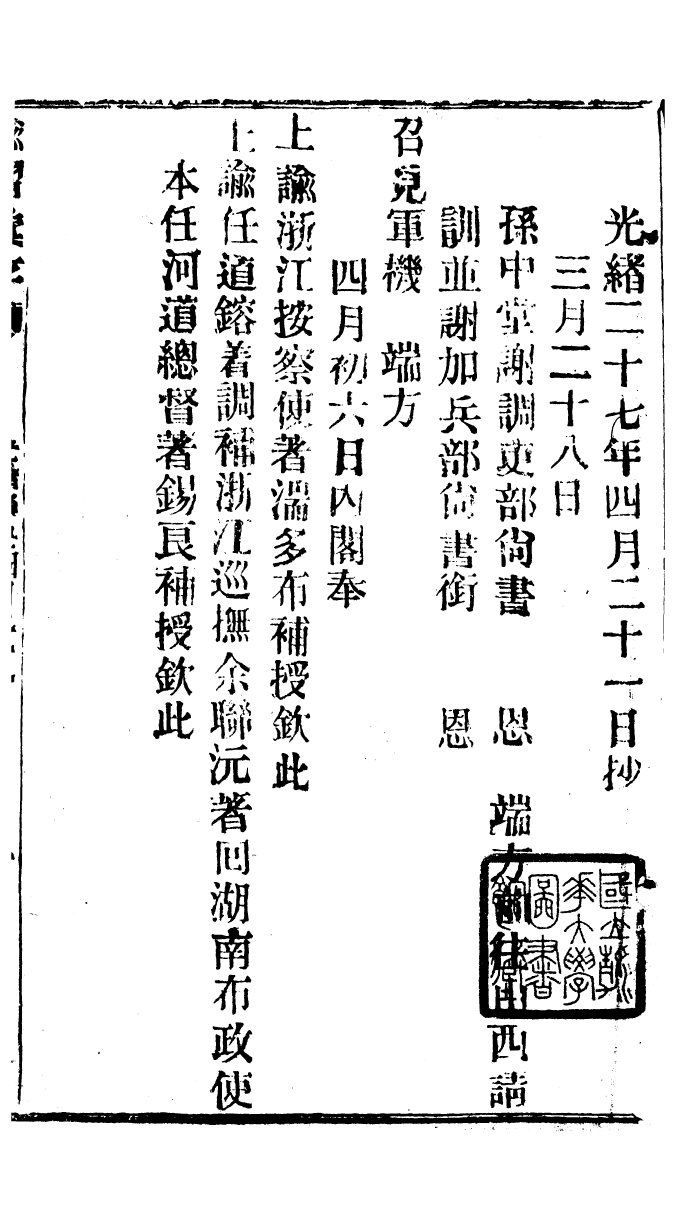 光緒二十七年四月二十一日抄
三月二十八日
孫中堂謝調吏部尙書 恩 端方謝 西請
訓並謝加兵部尙書銜 恩
召見軍機 端方
四月初六日內閣奉
上諭浙江按察使著濕多布補授欽此
上諭任道鎔着調補浙江巡撫余聯沅著回湖南布政使
本任河道總督著錫良補授欽此
國立清華大學圖書館藏